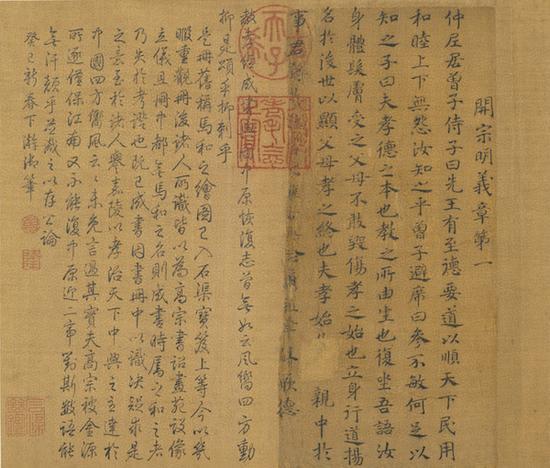 開宗明義章第一
仲尼居曾子侍子曰先王有至德要道以順天下民用
和睦上下無怨汝知之乎曾子避席曰參不敏何足以
知之子曰夫孝德之本也教之所由生也復坐吾語汝
身體髮膚受之父母不敢毀傷孝之始也立身行道揚
名於後世以顯父母孝之終也夫孝始 親中於
事君 爾祖聿 厥德
教孝經成 中原恢復志曾無如云風嚮四方動
抑是顯乎抑刺乎
是冊舊稱馬和之繪圖已入石渠寶笈上等今以幾
暇重觀冊後諸人所識皆以為高宗書詔畫苑設像
立儀且冊中都無馬和之名則成書時屬之和之者
乃失於考證也既已成書因書冊中以識決疑求是
之意至於諸人 以孝治天下中興之 達於
中國四方嚮風云云未免言過其實夫高宗被金源
所逼僅保江南又不能復中原迎二帝對斯數語能
無汗顏乎並識之以存公論
癸巳新春下澣御筆